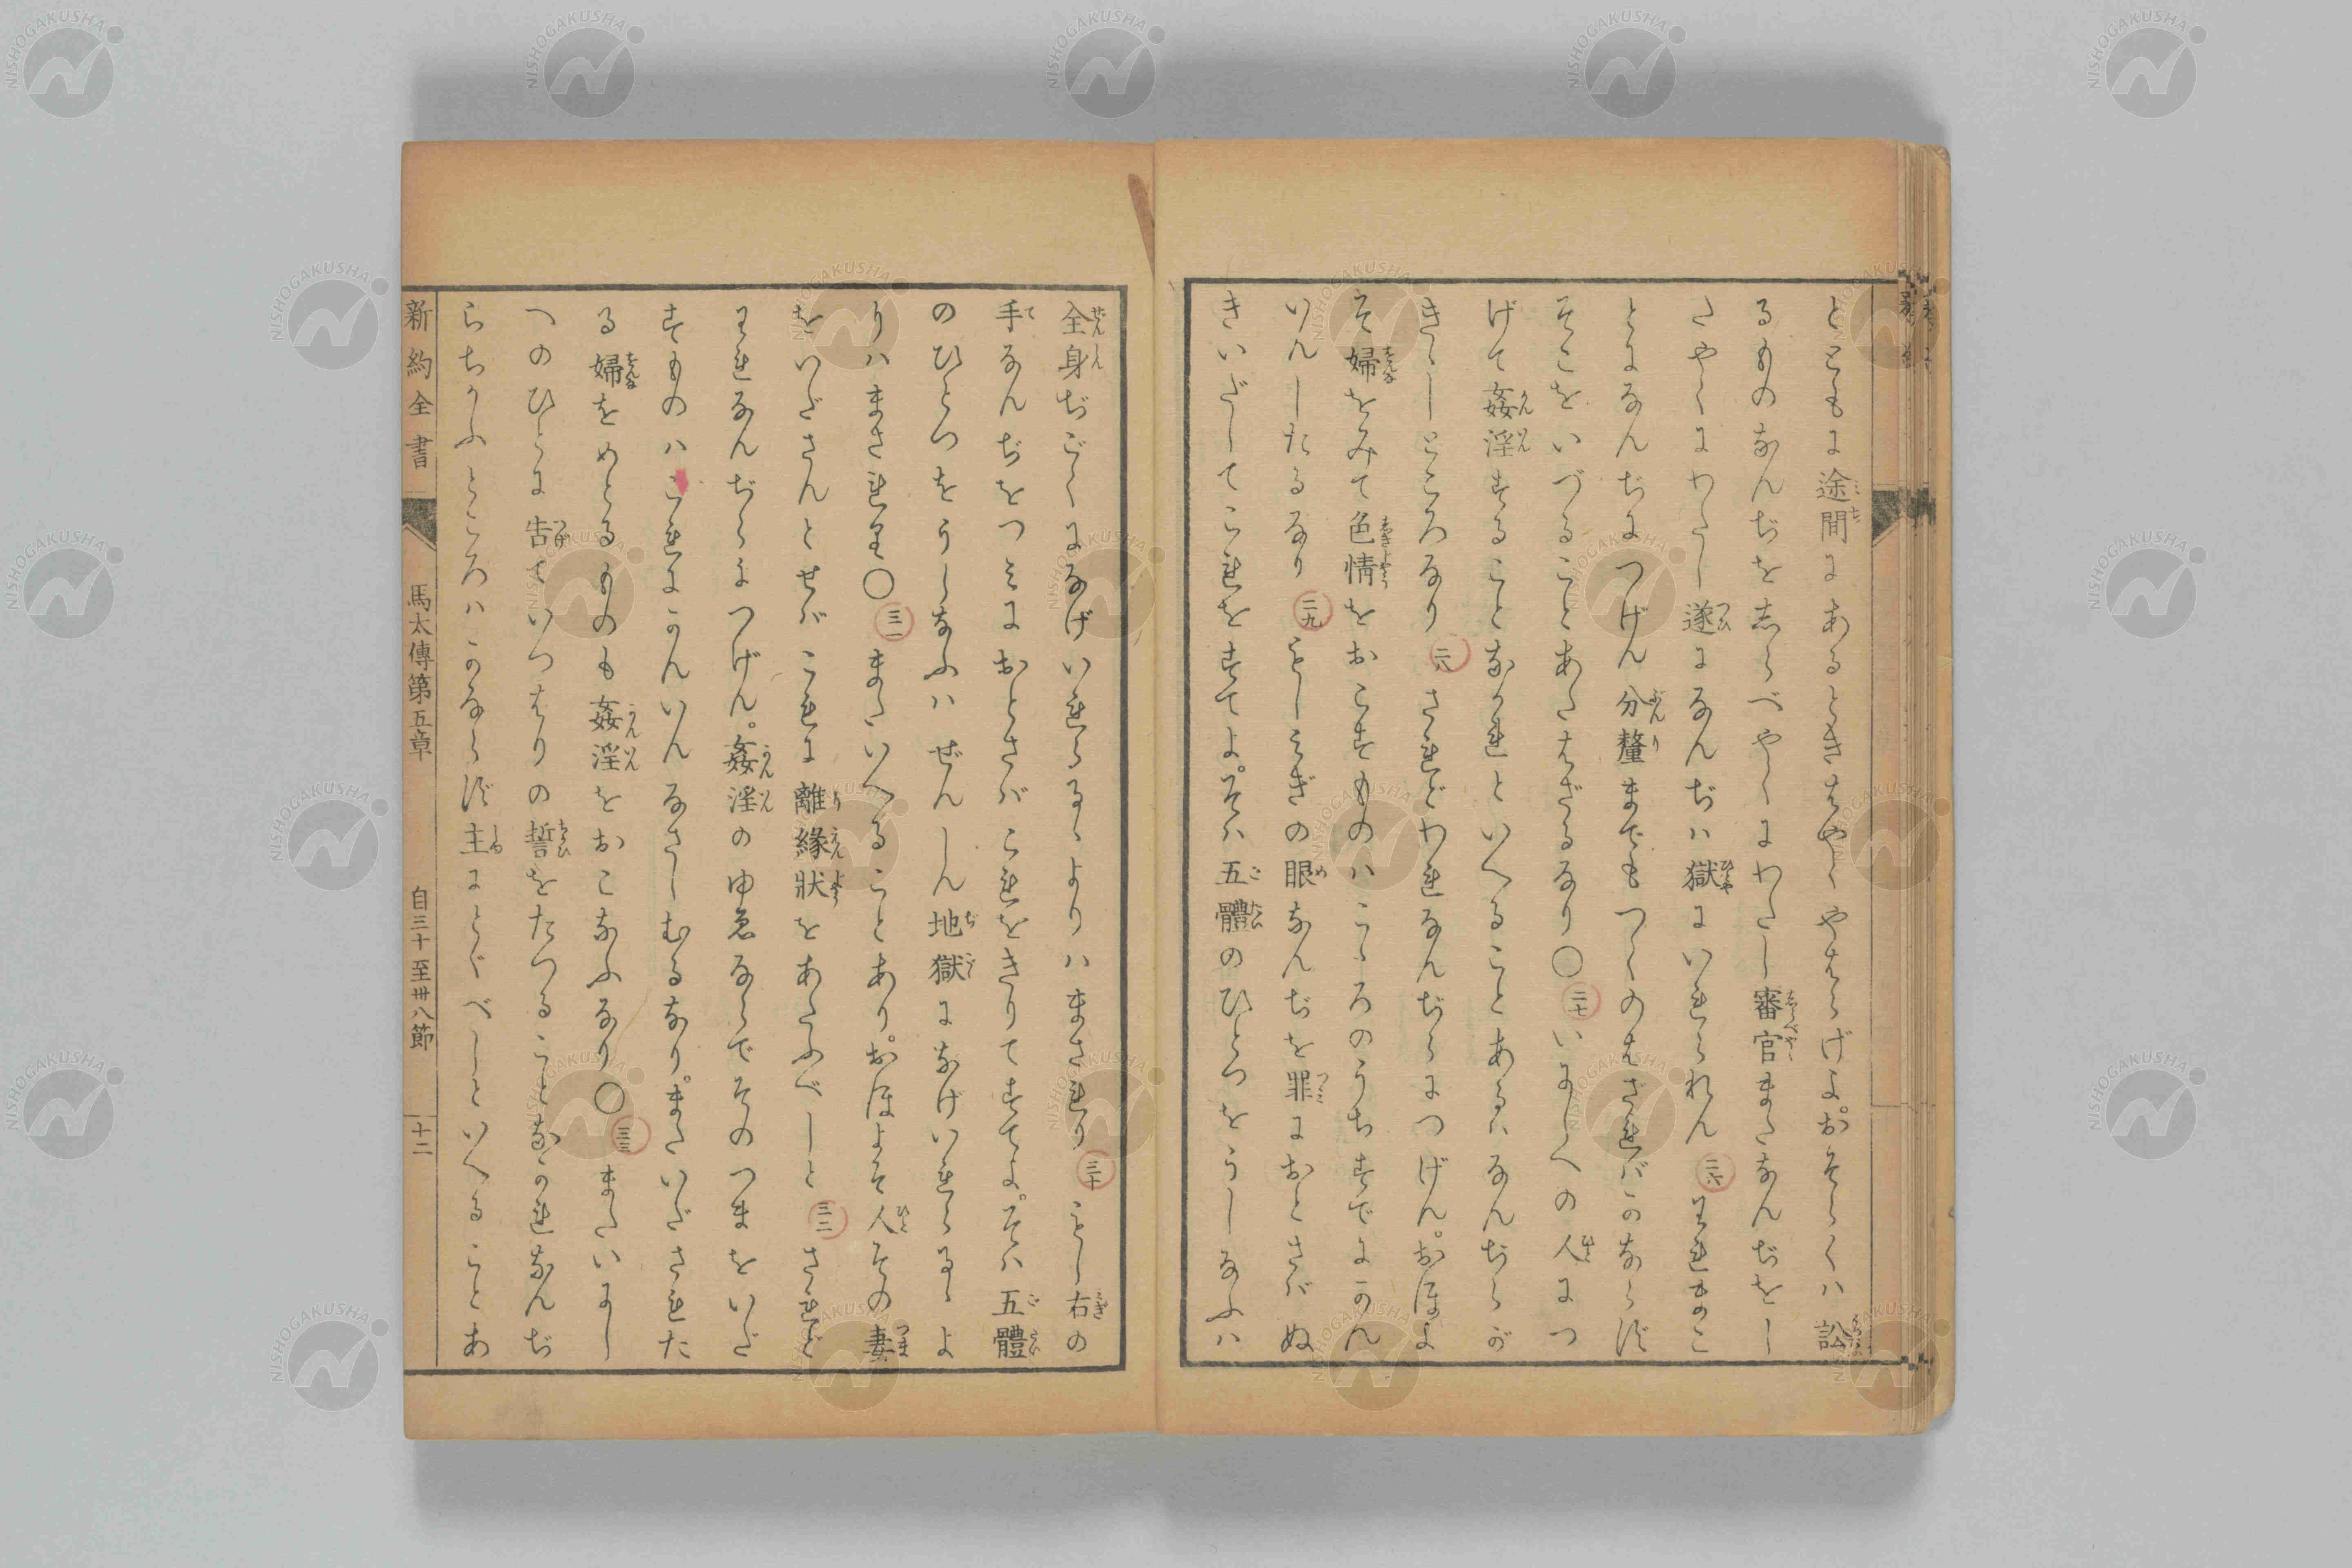 とともに途間にあるときはやくやはらげよ。おそらくハ訟
るものなんぢを志らべやくにわたし審官またなんぢをし
たやくにわたし遂になんぢハ獄にいれられん 二六 われまこ
とになんぢにつげん分釐までもつくのはざればかならず
そこをいづることあたはざるなり〇 二七 いにしへの人につ
げて姦淫することなかれといへることあるハなんぢらが
きゝしところなり 二八 されどわれなんぢらにつげん。おほよ
そ婦をみて色情をおこすものハこゝろのうちすでにかん
いんしたるなり 二九 もしみぎの眼なんぢを罪におとさバぬ
きいだしてこれをすてよ。そハ五體のひとつをうしなふハ
全身ぢごくになげいれらるゝよりハまされり 三十 もし右の
手なんぢをつミにおとさバこれをきりてすてよ。そハ五體
のひとつをうしなふハぜんしん地獄になげいれらるゝよ
りハまされり〇 三一 またいへることあり。おほよそ人その妻
をいださんとせバこれに離緣狀をあたふべしと 三二 されど
われなんぢらにつげん。姦淫のゆゑならでそのつまをいだ
すものハこれにかんいんなさしむるなり。またいだされた
る婦をめとるものも姦淫をおこなふなり〇 三三 またいにし
へのひとに告ていつはりの誓をたつることなかれなんぢ
らちかふところハかならず主にとぐべしといへることあ
新約全書 馬太傳第五章 自三十至卅八節 十二